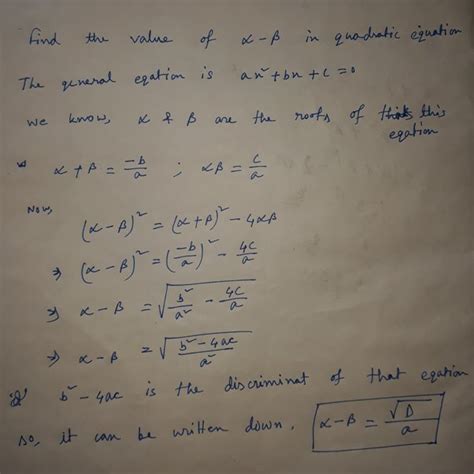 Find the value of α-β in quadratic equation
The general eqation is ax²+bx+c=0
we know, α & β are the roots of this
eqation
α+β = -b/a ; αβ = c/a
Now,
(α-β)² = (α+β)² - 4αβ
⇒ (α-β)² = (-b/a)² - 4c/a
⇒ α-β = √(b²/a² - 4c/a)
⇒ α-β = √((b²-4ac)/a²)
b²-4ac is the discriminat of that eqation
so, it can be written down, α-β = √D/a